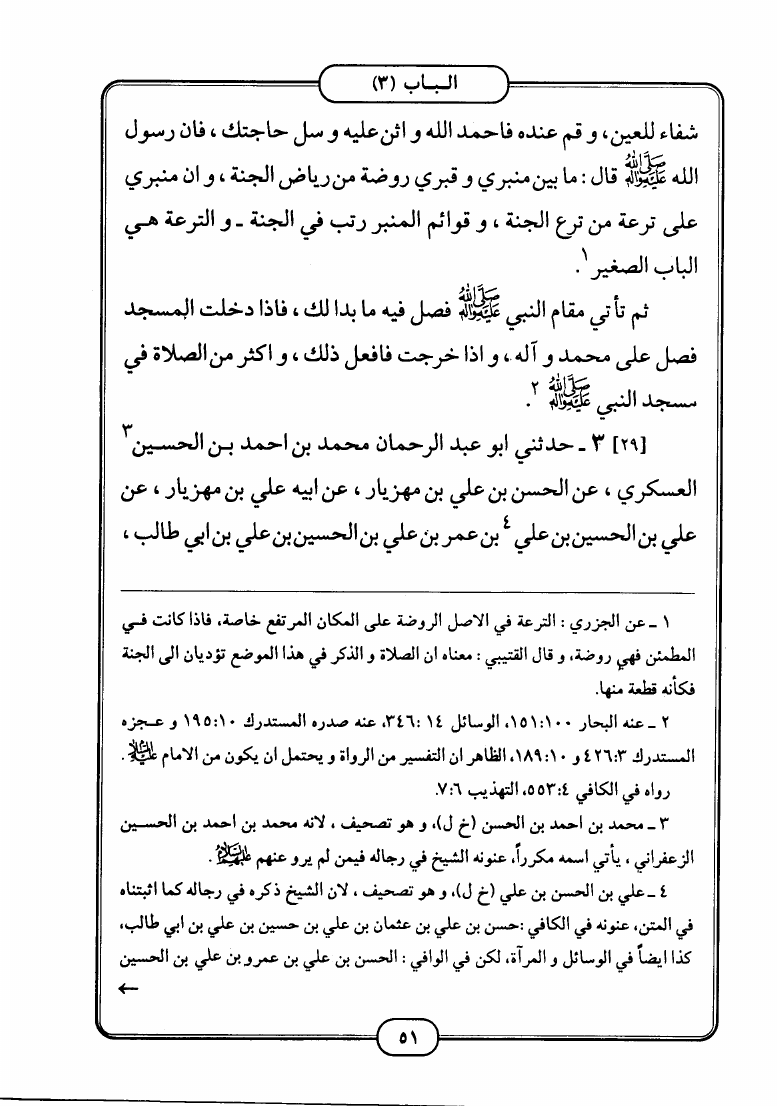 الباب (٣)
شفاء للعين، و قم عنده فاحمد الله و اثن عليه و سل حاجتك ، فان رسول
الله ﷺ قال : ما بين منبري و قبري روضة من رياض الجنة ، و ان منبري
على ترعة من ترع الجنة ، و قوائم المنبر رتب في الجنة ـ و الترعة هي
الباب الصغير ١.
ثم تأتي مقام النبي ﷺ فصل فيه ما بدا لك ، فاذا دخلت المسجد
فصل على محمد و آله ، و اذا خرجت فافعل ذلك ، و اكثر من الصلاة في
مسجد النبي ﷺ ٢.
[٢٩] ٣ ـ حدثني ابو عبد الرحمان محمد بن احمد بن الحسين ٣
العسكري ، عن الحسن بن علي بن مهزيار ، عن ابيه علي بن مهزيار ، عن
علي بن الحسين بن علي ٤ بن عمر بن علي بن الحسين بن علي بن ابي طالب ،
١ ـ عن الجزري : الترعة في الاصل الروضة على المكان المرتفع خاصة، فاذا كانت في
المطمئن فهي روضة، و قال القتيبي : معناه ان الصلاة و الذكر في هذا الموضع تؤديان الى الجنة
فكأنه قطعة منها.
٢ ـ عنه البحار ١٠٠:١٥١، الوسائل ١٤ :٣٤٦، عنه صدره المستدرك ١٠:١٩٥ و عجزه
المستدرك ٣:٤٢٦ و ١٠:١٨٩، الظاهر ان التفسير من الرواة و يحتمل ان يكون من الامام عليه السلام .
رواه في الكافي ٤:٥٥٣، التهذيب ٦:٧.
٣ ـ محمد بن احمد بن الحسن (خ ل)، و هو تصحيف ، لانه محمد بن احمد بن الحسين
الزعفراني ، يأتي اسمه مكرراً، عنونه الشيخ في رجاله فيمن لم يرو عنهم عليهم السلام .
٤ ـ علي بن الحسن بن علي (خ ل)، و هو تصحيف ، لان الشيخ ذكره في رجاله كما اثبتناه
في المتن، عنونه في الكافي :حسن بن علي بن عثمان بن علي بن حسين بن علي بن ابي طالب،
كذا ايضاً في الوسائل و المرآة، لكن في الوافي : الحسن بن علي بن عمرو بن علي بن الحسين
←
٥١